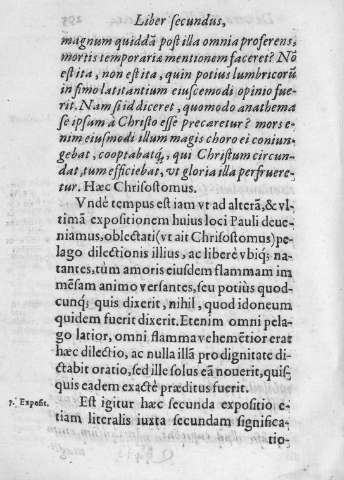 Liber secundus,
magnum quiddã post illa omnia proferens,
mortis temporariæ mentionem faceret? Nõ
est ita, non est ita, quin potius lumbricorũ
in fimo latitantium eiuscemodi opinio fue-
rit. Nam si id diceret, quomodo anathema
se ipsam à Christo esse precaretur? mors e-
nim eiusmodi illum magis choro ei coniun-
gebat, cooptabatq́;, qui Christum circun-
dat, tum efficiebat, vt gloria illa perfruere-
tur. Hæc Chrisostomus.
Vndè tempus est iam vt ad alterã, & vl-
timã expositionem huius loci Pauli deue-
niamus, oblectati (vt ait Chrisostomus) pe-
lago dilectionis illius, ac liberè vbiq; na-
tantes, tùm amoris eiusdem flammam im
mẽsam animo versantes, seu potiùs quod-
cunq; quis dixerit, nihil, quod idoneum
quidem fuerit dixerit. Etenim omni pela-
go latior, omni flamma vehemẽtior erat
hæc dilectio, ac nulla illã pro dignitate di-
ctabit oratio, sed ille solus eã nouerit, quis-
quis eadem exactè præditus fuerit.
7. Exposit.
Est igitur hæc secunda expositio e-
tiam literalis iuxta secundam significa-
tio-